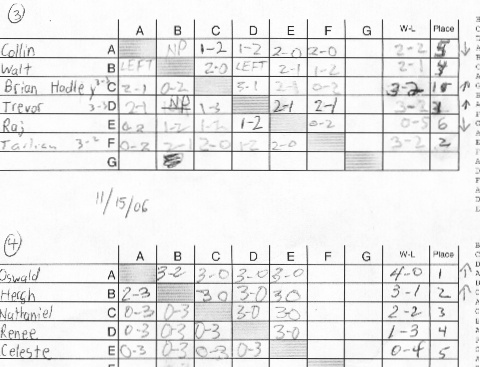 ③
A B C D E F G W-L Place
Collin A NP 1-2 1-2 2-0 2-0 2-2
Walt B LEFT 2-0 LEFT 2-1 1-2 2-1
Brian Hadley C 2-1 0-2 2-1 0-2 3-2
Trevor D 2-1 NP 1-3 2-1 2-1 3-2
Raj E 0-2 1-2 1-2 1-2 0-2 0-5 6
F 0-2 1-2 2-0 1-2 2-0 3-2 2
G
11/15/06
④
A B C D E F G W-L Place
Oswald A 3-2 3-0 3-0 3-0 4-0 1
Hergh B 2-3 3-0 3-0 3-0 3-1 2
Nathaniel C 0-3 0-3 3-0 3-0 2-2 3
Renee D 0-3 0-3 0-3 3-0 1-3 4
Celeste E 0-3 0-3 0-3 0-3 0-4 5